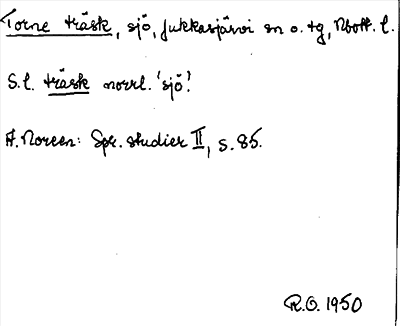 Torne träsk, sjö, Jukkasjärvi sn o. tg, Nbott. l.
S.l. träsk norrl. 'sjö'.
A. Noreen: Spr. studier II, s. 85.
R.O. 1950